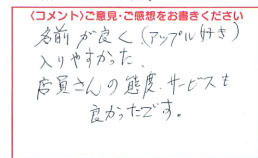 〈コメント〉ご意見・ご感想をお書きください
名前が良く(アップル好き)
入りやすかった、
店員さんの態度、サービスも
良かったです。